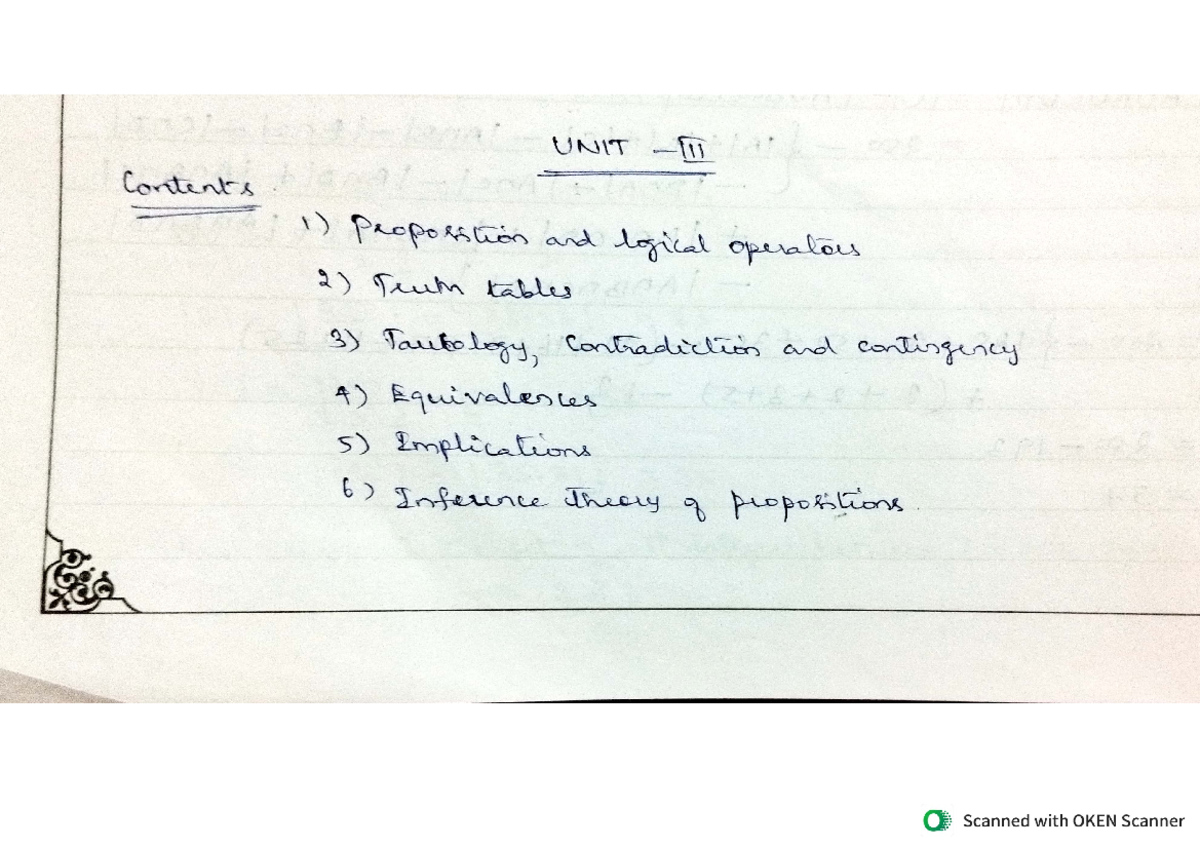 UNIT - III
Contents
1) Proposition and logical operators
2) Truth tables
3) Tautology, Contradiction and contingency
4) Equivalences
5) Implications
6) Inference Theory of propositions
Scanned with OKEN Scanner